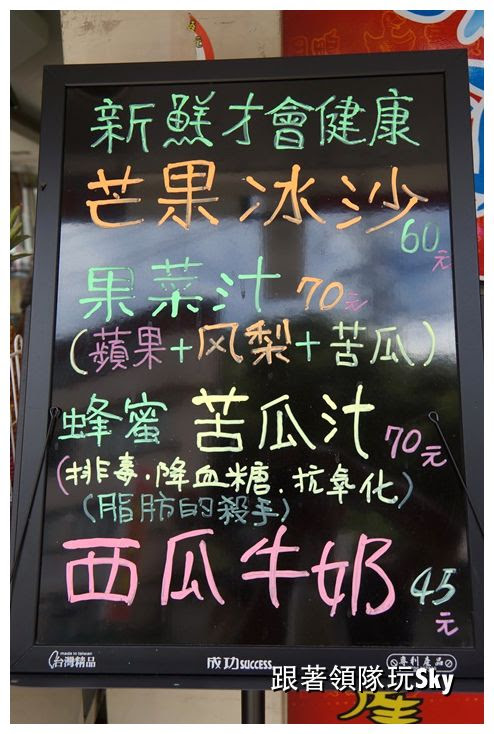 新鮮才會健康
芒果冰沙
60元
果菜汁 70元
(蘋果+风梨+苦瓜)
蜂蜜 苦瓜汁 70元
(排毒.降血糖.抗氧化)
(脂肪的殺手)
西瓜牛奶 45元
made in taiwan
台灣精品
成功 SUCCESS
專利產品
跟著領隊玩Sky